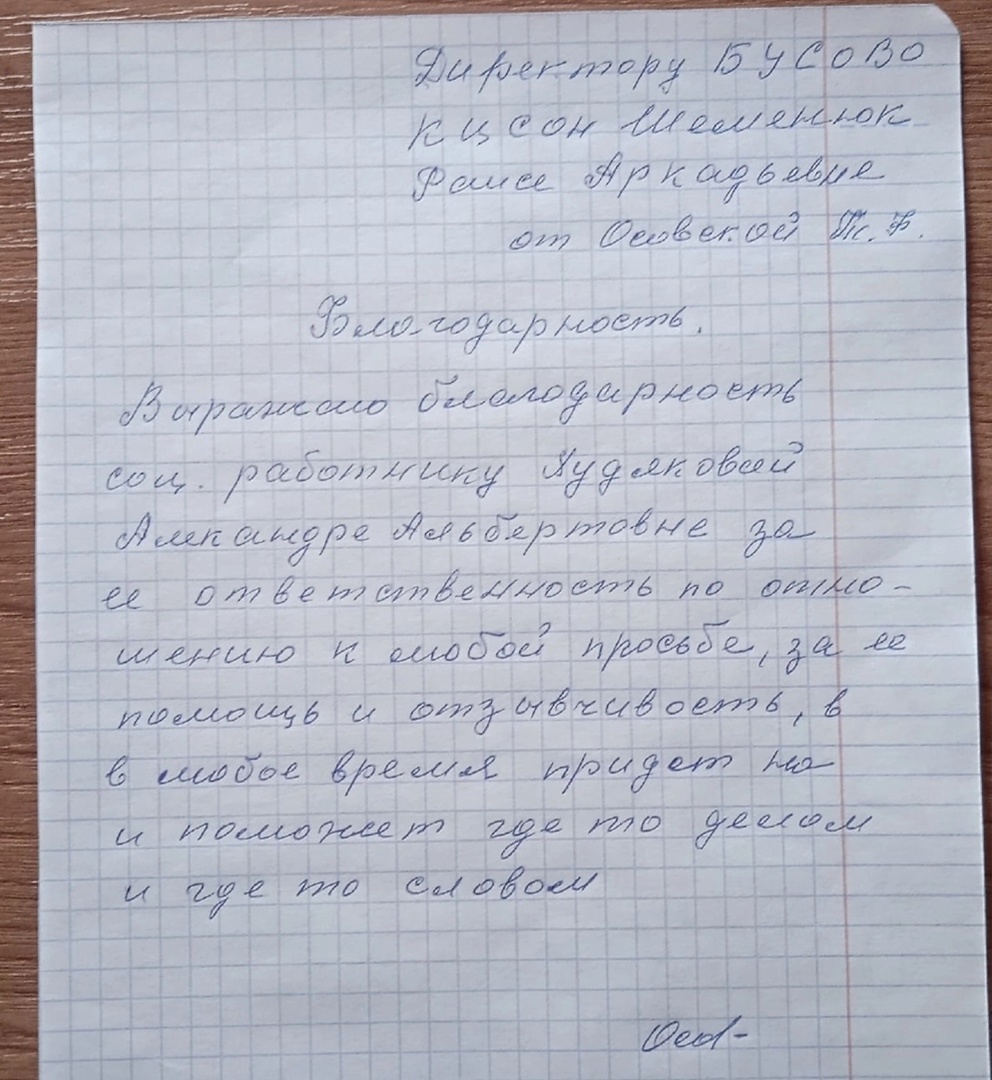 Директору БУСОВО
КЦСОН Шеменюк
Раисе Аркадьевне
от Осовской Т. Ф.
Благодарность.
Выражаю благодарность
соц. работнику Худяковой
Алекандре Альбертовне за
ее ответственность по отно-
шению к любой просьбе, за ее
помощь и отзывчивость, в
в любое время придет на
и поможет где то делом
и где то словом